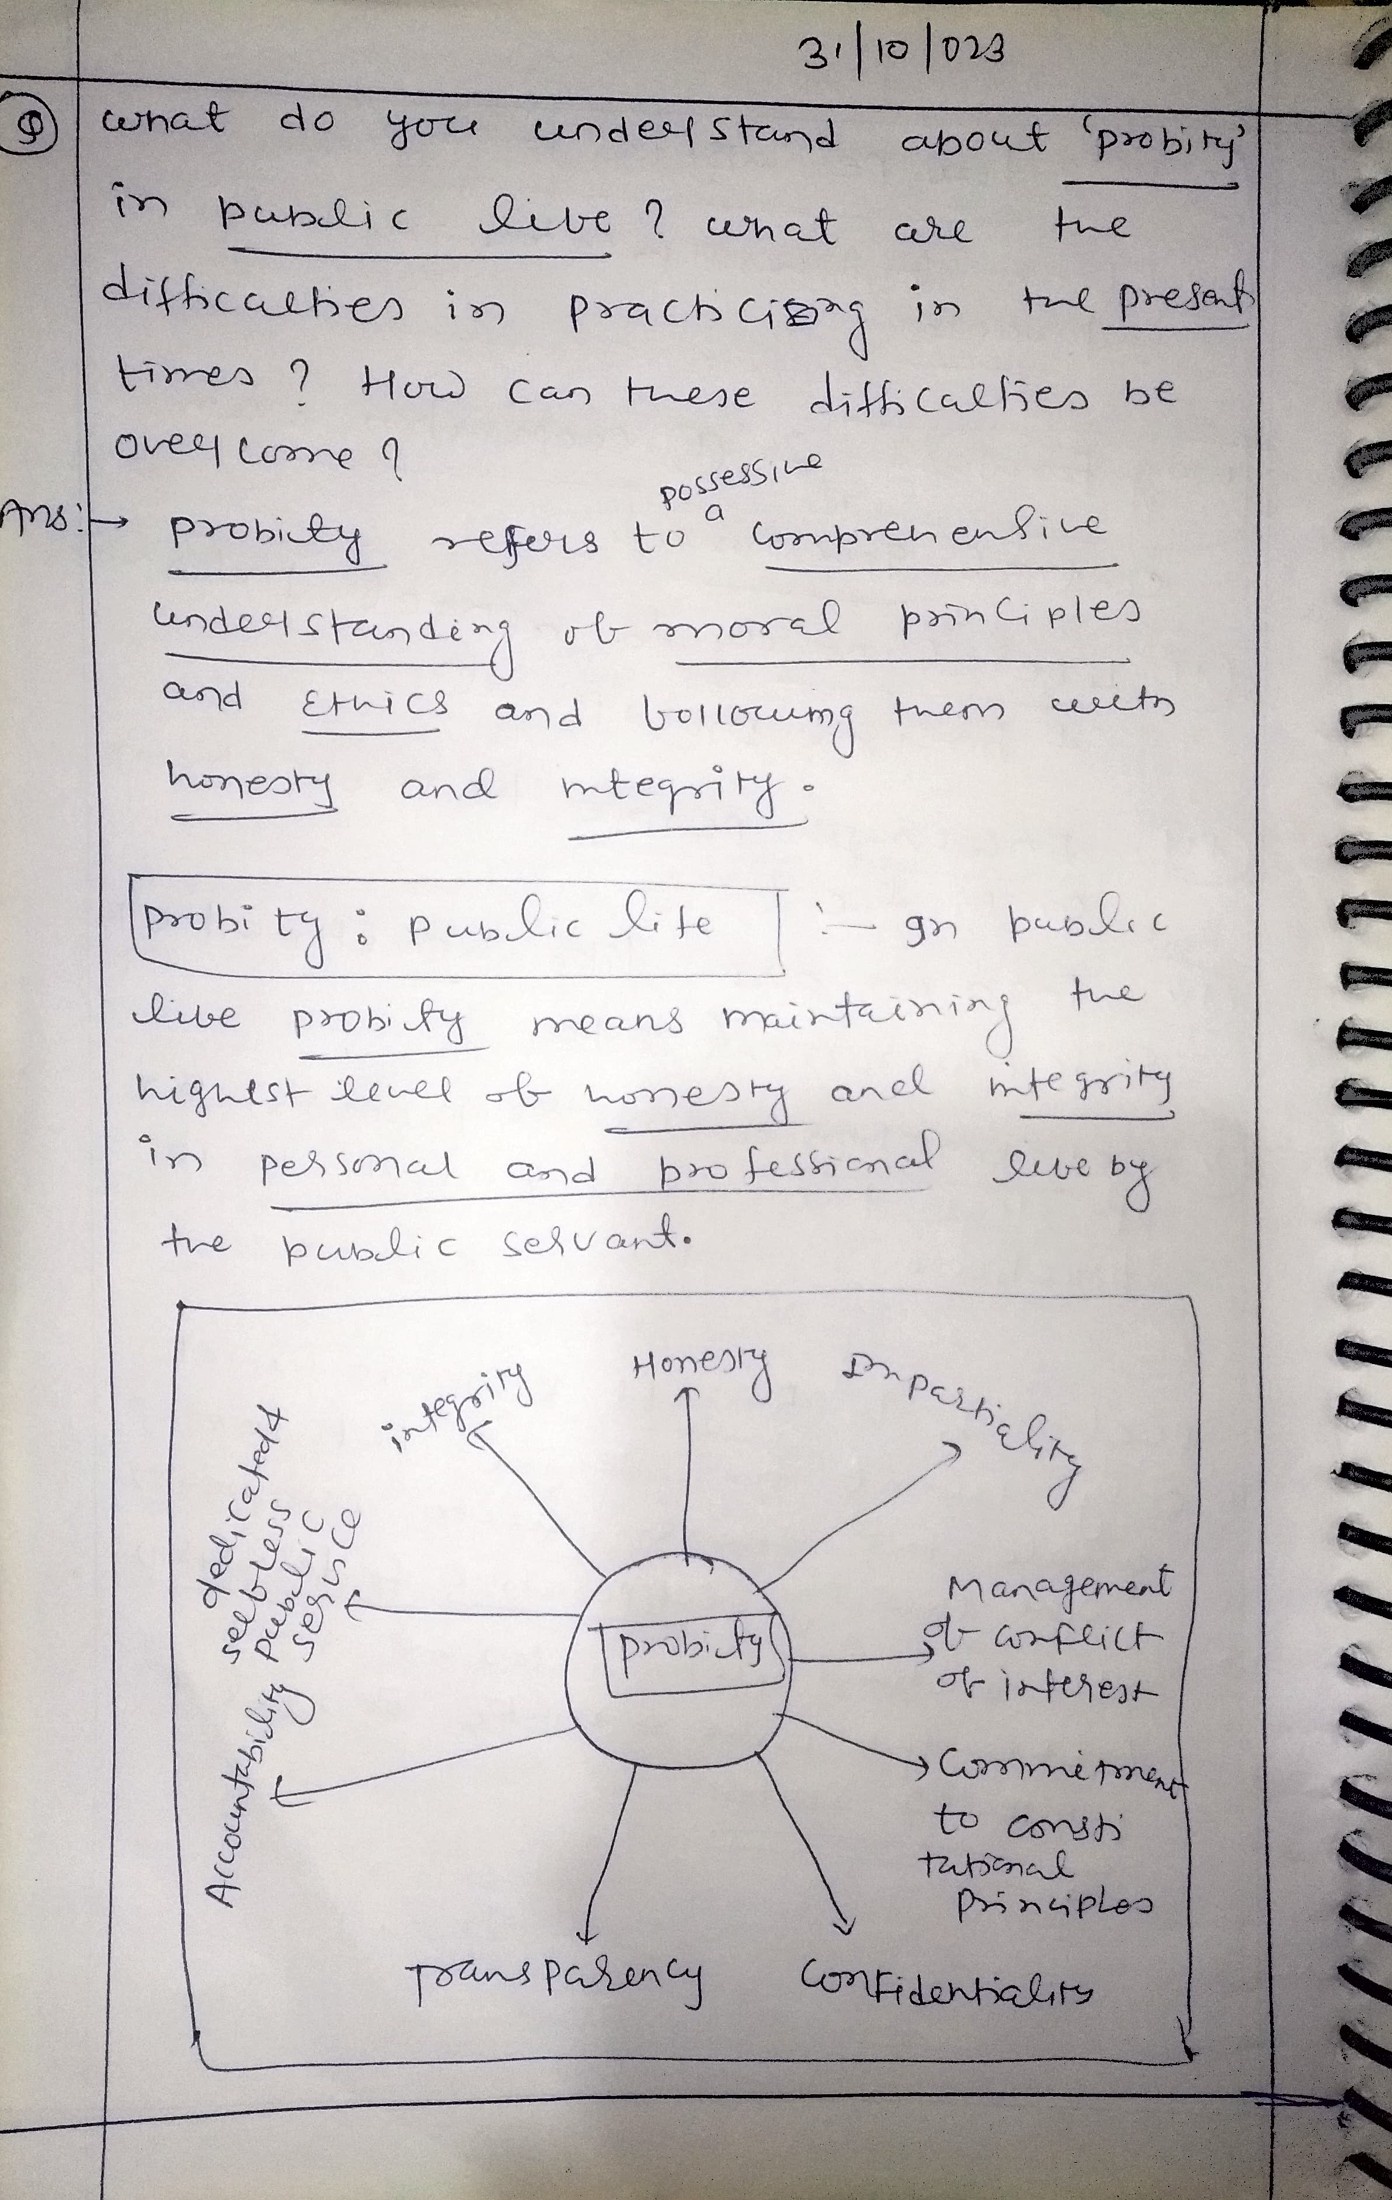 31/10/023
Q what do you understand about 'probity'
in public live? what are the
difficulties in practicing in the present
times? How can these difficulties be
overcome?
possessive
Ans:→ probity refers to a comprehensive
understanding of moral principles
and Ethics and following them with
honesty and integrity.
probity: public life :- In public
live probity means maintaining the
highest level of honesty and integrity
in personal and professional live by
the public servant.
integrity
Honesty
Impartiality
dedicated &
selfless
public
service
probity
Management
of conflict
of interest
Accountability
Commitment
to consti
tutional
principles
Transparency
Confidentiality